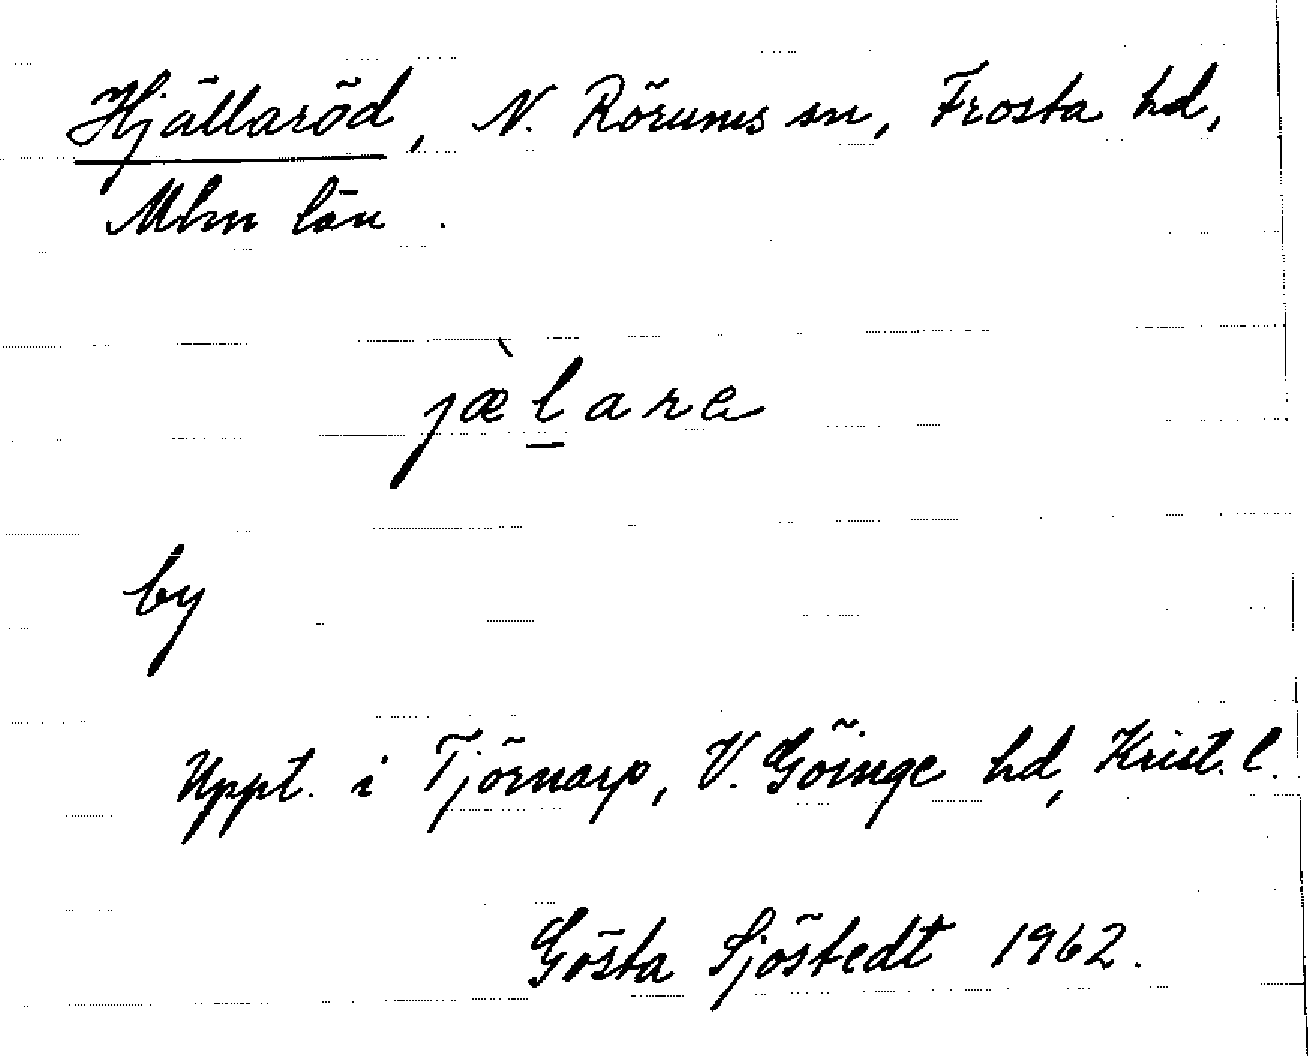 Hjällaröd, N. Rörums sn, Frosta hd,
Mlm län.
jæ̀lara
by
Uppt. i Tjörnarp, V. Göinge hd, Krist. l.
Gösta Sjöstedt 1962.